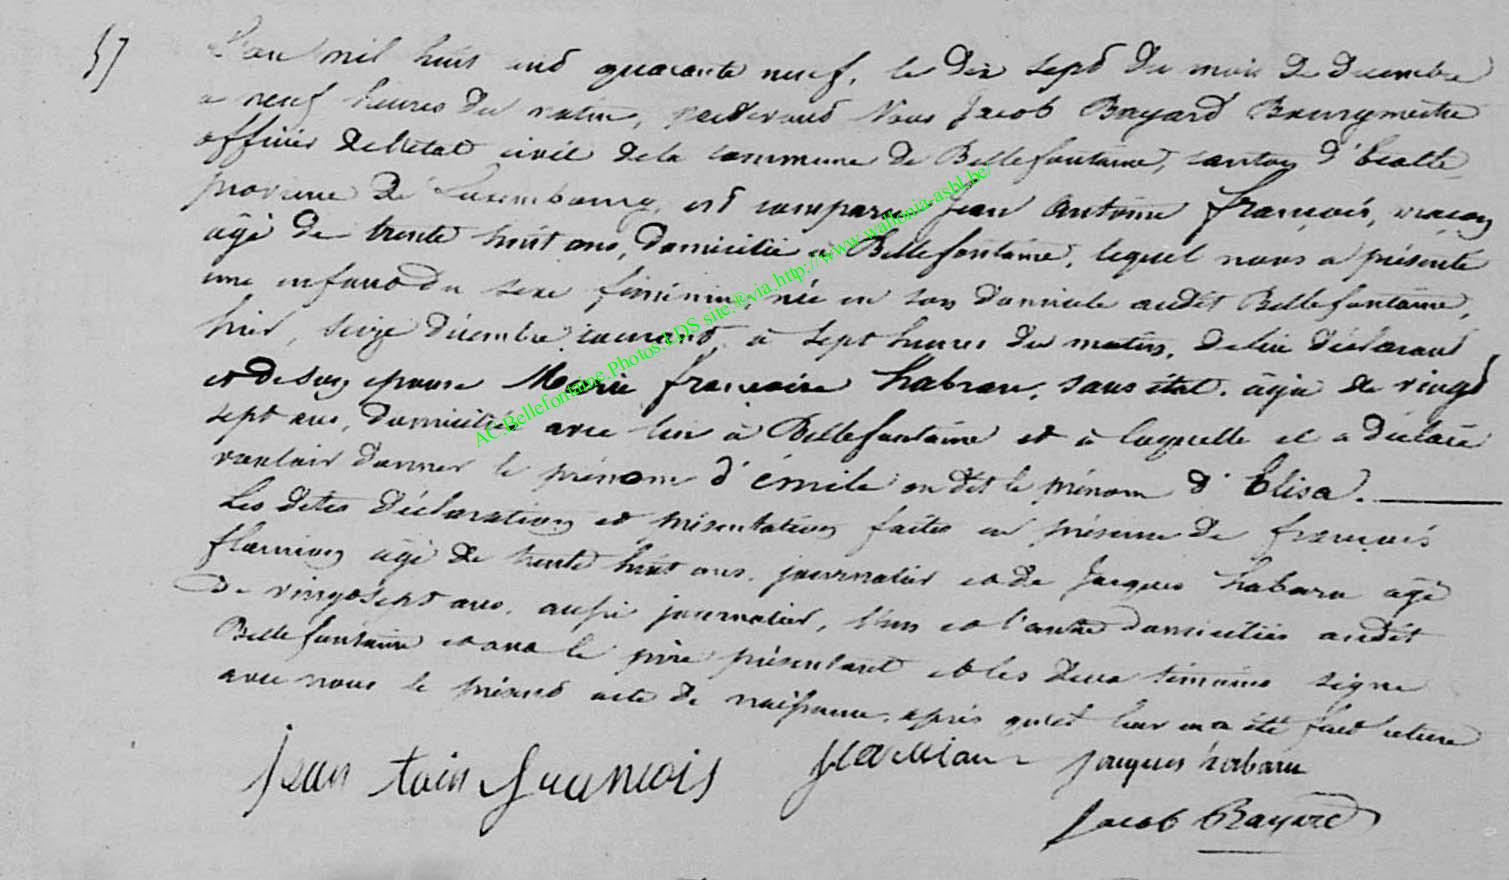 57
L'an mil huit cent quarante neuf, le dix sept du mois de décembre
a neuf heures du matin, pardevant Nous Jacob Bayard Bourgmestre
officier de l'état civil de la commune de Bellefontaine, canton d'Etalle,
province de Luxembourg, est comparu Jean Antoine françois, maçon
âgé de trente huit ans, domicilié à Bellefontaine, lequel nous a présenté
une enfant du sexe féminin, née en son domicile audit Bellefontaine,
hier, seize décembre courant, à sept heures du matin, de lui déclarant
et de son epouse Marie françoise habran, sans état, âgée de vingt
sept ans, domiciliée avec lui à Bellefontaine et à laquelle il a déclaré
vouloir donner le prénom d'émile on dit le prénom d'Elisa.
Les dites déclaration et présentation faites en présence de françois
flamion âgé de trente huit ans, journalier et de Jacques habaru agé
De vingt sept ans, aussi journalier, l'un et l'autre domiciliés audit
Bellefontaine et ont le père présentant et les deux témoins signé
avec nous le présent acte de naissance, après qu'il leur en a été fait lecture
jean toin francois flamion jacques habaru
Jacob Bayard
AC.Bellefontaine.Photos.LDS site.®via.http://www.wallonia-asbl.be/